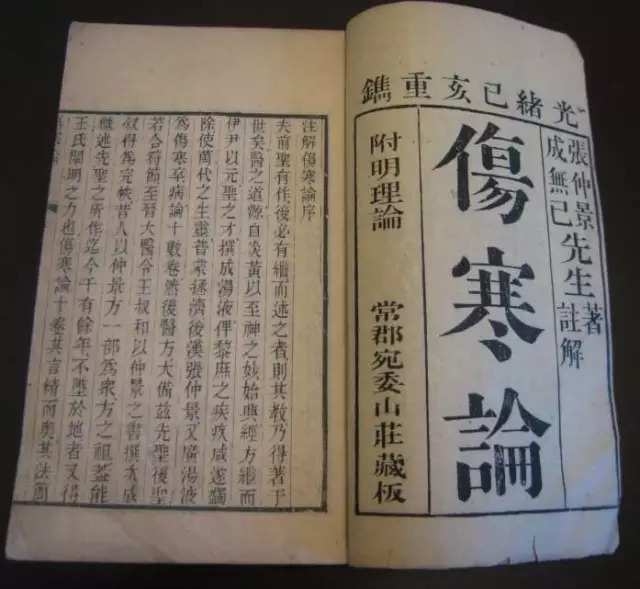 光緒己亥重鐫
張仲景先生著
成無己先生註解
傷寒論
附明理論
常郡宛委山莊藏板
注解傷寒論序
夫前聖有作後必有繼而述之者則其教乃得著于
世矣醫之道源自炎黃以至神之妙始興經方繼而
伊尹以元聖之才撰成湯液俾黎庶之疾疢咸遂蠲
除使萬代之生靈普蒙拯濟後漢張仲景又廣湯液
爲傷寒卒病論十數卷然後醫方大備茲先聖後聖
若合符節至晉太醫令王叔和以仲景之書撰次成
叙得爲完帙昔人以仲景方一部爲衆方之祖蓋能
繼述先聖之所作迄今千有餘年不墜於地者又得
王氏闡明之力也傷寒論十卷其言精而奧其法